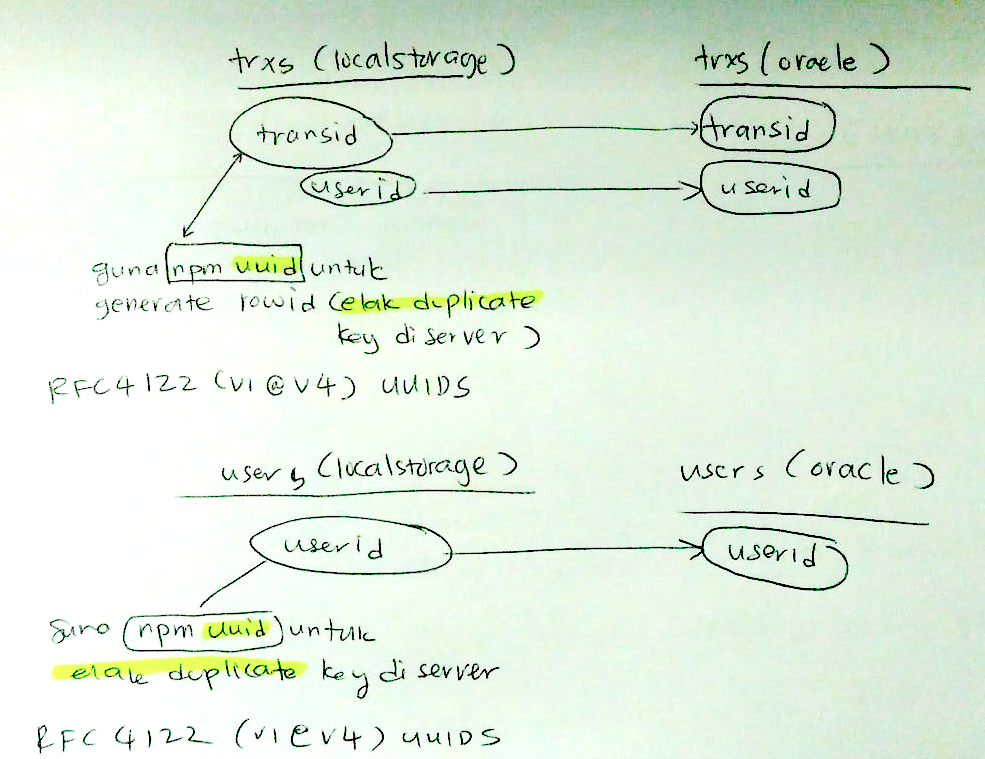 trxs (localstorage)
trxs (oracle)
transid
transid
userid
userid
guna npm uuid untuk
generate rowid (elak duplicate
key di server)
RFC4122 (v1@v4) UUIDS
users (localstorage)
users (oracle)
userid
userid
guna npm uuid untuk
elak duplicate key di server
RFC 4122 (v1@v4) UUIDS